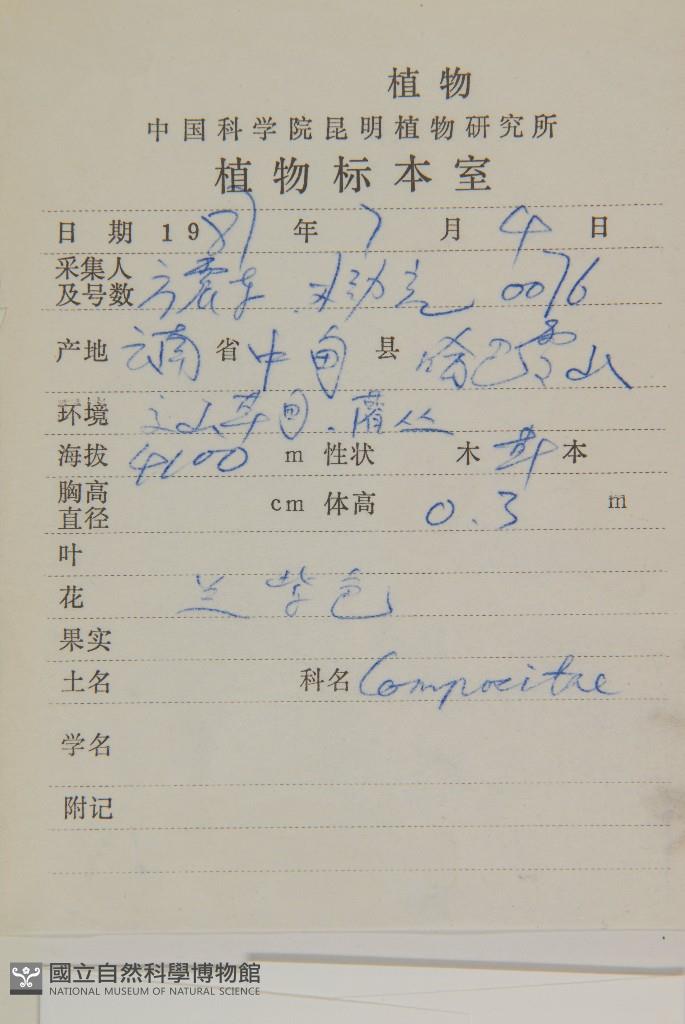 植物
中国科学院昆明植物研究所
植物标本室
日 期 1987 年 7 月 4 日
采集人
及号数 方震东 0076
产地 云南 省 中甸 县 哈巴雪山
环境 草甸.灌丛
海拔 4100 m 性状 木 草 本
胸高
直径 cm 体高 0.3 m
叶
花 兰紫色
果实
土名 科名 Compositae
学名
附记
國立自然科學博物館
NATIONAL MUSEUM OF NATURAL SCIENCE